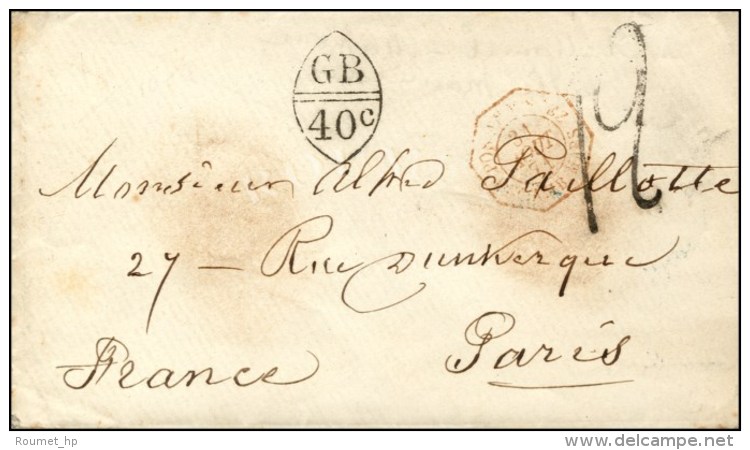 GB
40c
12
Monsieur Alfred Paillotte
27 — Rue Dunkerque
Paris
France
Roumet_hp
© delcampe.net